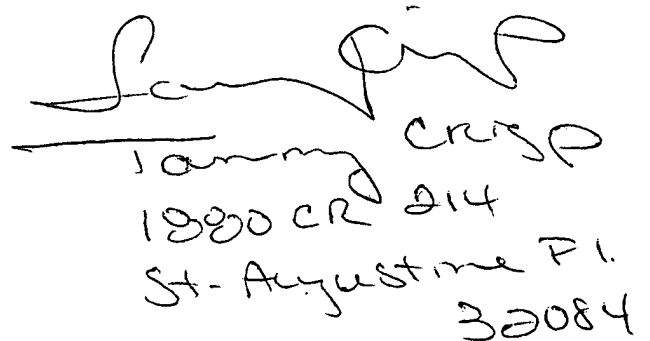 Tammy Crisp
1880 CR 214
St-Augustine Fl.
32084